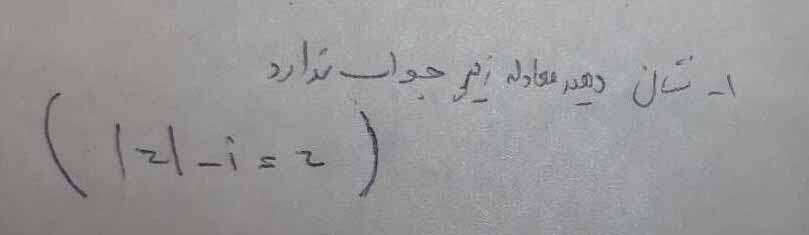 ۱- نشان دهید معادله زیر جواب ندارد
(|z| - i = z)